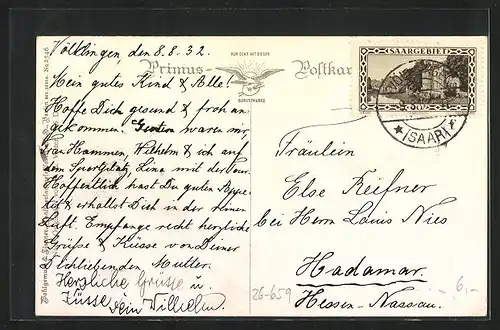 Völklingen, den 8.8.32.
Mein gutes Kind & Alle!
Hoffe Dich gesund & froh an-
gekommen. Gestern waren wir
Frau Hammen, Wilhelm & ich auf
dem Sportplatz, Line mit der Tour.
Hoffentlich hast Du guten Appe-
tit & erhollst Dich in der feinen
Luft. Empfange recht herzliche
Grüsse & Küsse von Deiner
Dichliebenden Mutter.
Herzliche Grüsse u.
Küsse Dein Wilhelm.
Primus Postkar
NUR ECHT MIT DIESER
SCHUTZMARKE
SAARGEBIET
(SAAR)
Fräulein
Else Reifner
bei Herrn Louis Nies
Hadamar.
Hessen-Nassau.
26-659
6,-